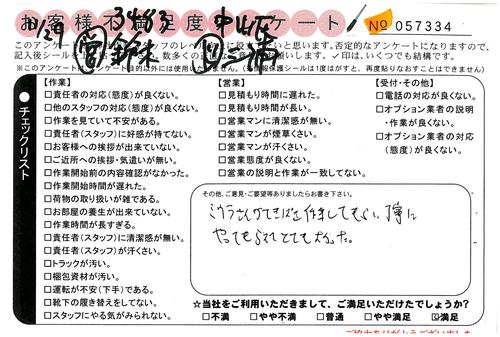 お客様不満足度アンケート!
No 057334
11/29
営
このアンケートは
スタッフのレベル
と思います。否定的なアンケートになりますので、
記入後シールを
数多くの
お願いします。✓印は、いくつでも結構です。
※このアンケートは
アンケート目的以外には使用
(保護シールは1度はがすと、再度貼りなおすことはできません)
チェックリスト
【作業】
□責任者の対応(態度)が良くない。
□他のスタッフの対応(態度)が良くない。
□作業を見ていて不安がある。
□責任者(スタッフ)に好感が持てない。
□お客様への挨拶が出来ていない。
□ご近所への挨拶・気遣いが無い。
□作業開始前の内容確認がなかった。
□作業開始時間が遅れた。
□荷物の取り扱いが雑である。
□お部屋の養生が出来ていない。
□作業時間が長すぎる。
□責任者(スタッフ)に清潔感が無い。
□責任者(スタッフ)が汗くさい。
□トラックが汚い。
□梱包資材が汚い。
□運転が不安(下手)である。
□靴下の履き替えをしてない。
□スタッフにやる気がみられない。
【営業】
□見積もり時間に遅れた。
□見積もり時間が長い。
□営業マンに清潔感が無い。
□営業マンが煙草くさい。
□営業マンが汗くさい。
□営業態度が良くない。
□営業の説明と作業が一致してない。
【受付・その他】
□電話の対応が良くない。
□オプション業者の説明
・作業が良くない。
□オプション業者の対応
(態度)が良くない。
その他、ご意見・ご要望等ありましたらお書き下さい。
やってもらえてとてもよかった。
☆当社をご利用いただきまして、ご満足いただけたでしょうか?
□不満 □やや不満 □普通 □やや満足 ☑満足
ご協力ありがとうございました